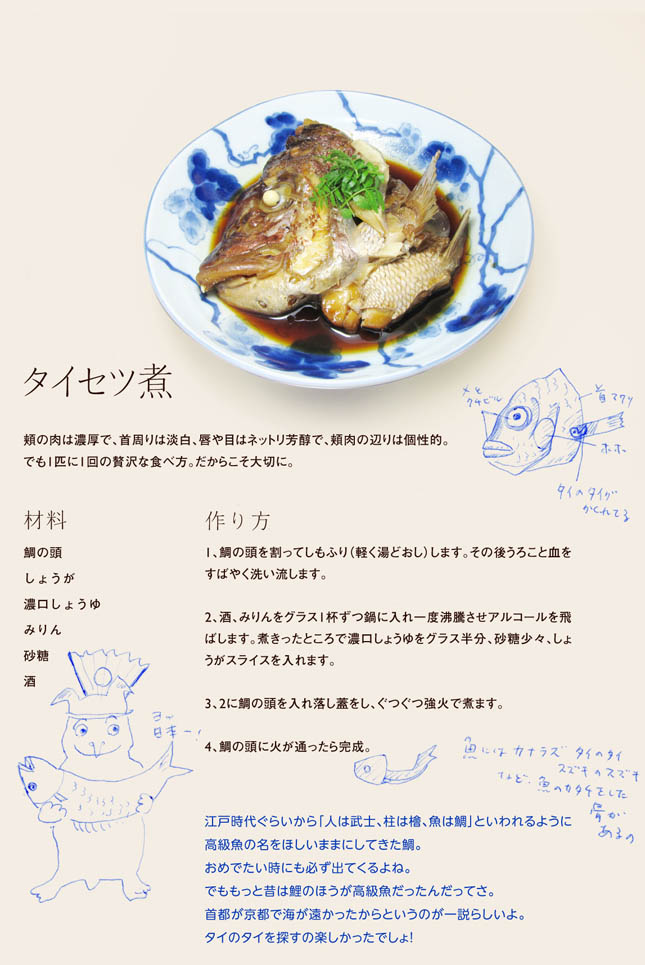 タイセツ煮
頬の肉は濃厚で、首周りは淡白、唇や目はネットリ芳醇で、頬肉の辺りは個性的。
でも1匹に1回の贅沢な食べ方。だからこそ大切に。
メと
クチビル
首マワリ
ホホ
タイのタイが
かくれてる
材料
鯛の頭
しょうが
濃口しょうゆ
みりん
砂糖
酒
作り方
1、鯛の頭を割ってしもふり（軽く湯どおし）します。その後うろこと血を
すばやく洗い流します。
2、酒、みりんをグラス1杯ずつ鍋に入れ一度沸騰させアルコールを飛
ばします。煮きったところで濃口しょうゆをグラス半分、砂糖少々、しょ
うがスライスを入れます。
3、2に鯛の頭を入れ落し蓋をし、ぐつぐつ強火で煮ます。
4、鯛の頭に火が通ったら完成。
ヨッ
日本一！
魚にはカナラズタイのタイ
スズキのスズキ
など、魚のカタチをした
骨が
あるの
江戸時代ぐらいから「人は武士、柱は檜、魚は鯛」といわれるように
高級魚の名をほしいままにしてきた鯛。
おめでたい時にも必ず出てくるよね。
でももっと昔は鯉のほうが高級魚だったんだってさ。
首都が京都で海が遠かったからというのが一説らしいよ。
タイのタイを探すの楽しかったでしょ！